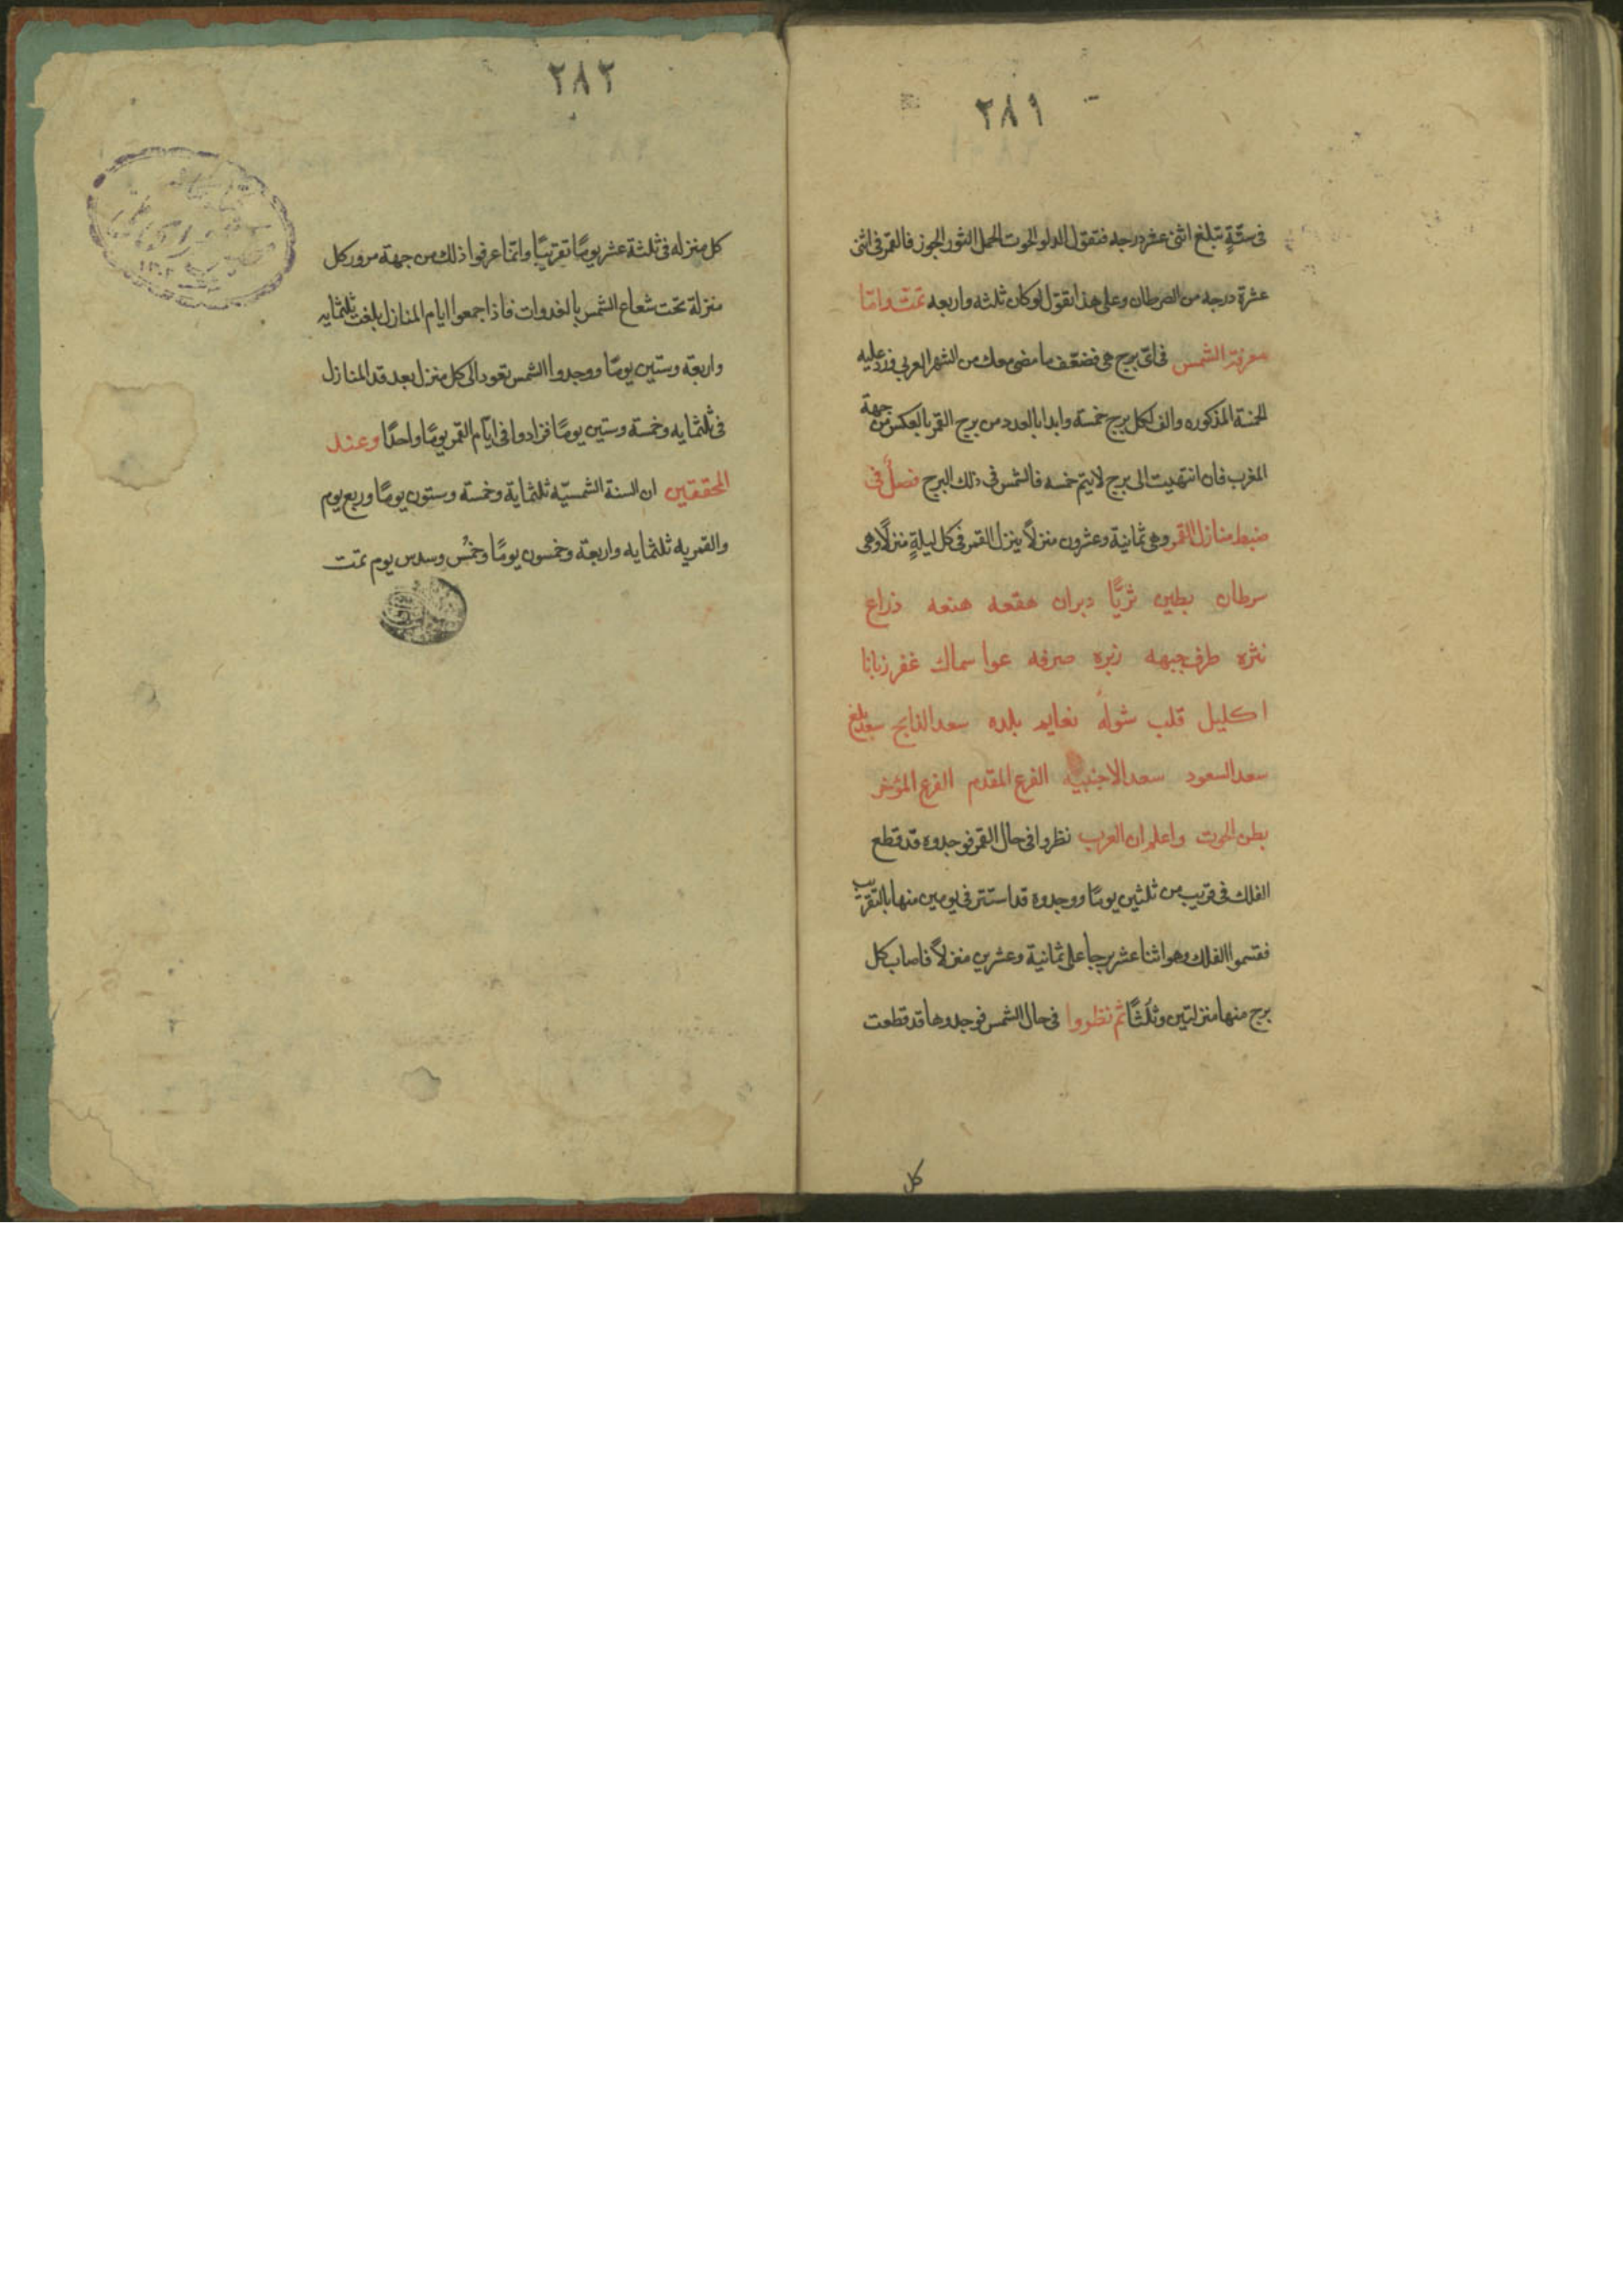 ٢٨١
فى ستّةٍ تبلغ اثنى عشر درجه فتقول الدلو الحوت الحمل الثور الجوز فالقمر فى اثنى
عشرة درجه من السرطان وعلى هذا تقول لو كان ثلثه واربعه تمت واما
معرفة الشمس فى اىّ برج هى فضعّف ما مضى معك من الشهر العربى وزد عليه
الخمسة المذكوره والف لكل برج خمسة وابدا بالعدد من برج القمر بالعكس من جهة
المغرب فان انتهيت الى برج لا يتم خمسه فالشمس فى ذلك البرج فصلٌ فى
ضبط منازل القمر وهى ثمانية وعشرون منزلاً ينزل القمر فى كل ليلةٍ منزلًا وهى
سرطان بطين ثريّا دبران هقعه هنعه ذراع
نثره طرف جبهه زبره صرفه عوا سماك غفر زبانا
اكليل قلب شوله نعايم بلده سعد الذابح سعد بلع
سعد السعود سعد الاخبيه الفرع المقدم الفرع المؤخر
بطن الحوت واعلم ان العرب نظروا فى حال القمر فوجدوه قد قطع
الفلك فى قريب من ثلثين يومًا ووجدوه قد استتر فى يومين منها بالتقريب
فقسموا الفلك وهو اثنا عشر برجا على ثمانية وعشرين منزلاً فاصاب كل
برج منها منزلتين وثلثًا ثم نظروا فى حال الشمس فوجدوها قد قطعت
كل
٢٨٢
كل منزله فى ثلثة عشر يومًا تقريبًا وانما عرفوا ذلك من جهة مرور كل
منزلة تحت شعاع الشمس بالغدوات فاذا جمعوا ايام المنازل بلغت ثلثمايه
واربعة وستين يومًا ووجدوا الشمس تعود الى كل منزل بعد قد المنازل
فى ثلثمايه وخمسة وستين يومًا فزادوا فى ايّام القمر يومًا واحدًا وعند
المحققين ان السنة الشمسيّه ثلثماية وخمسة وستون يومًا وربع يوم
والقمريه ثلثمايه واربعة وخمسون يومًا وخمُس وسدس يوم تمت